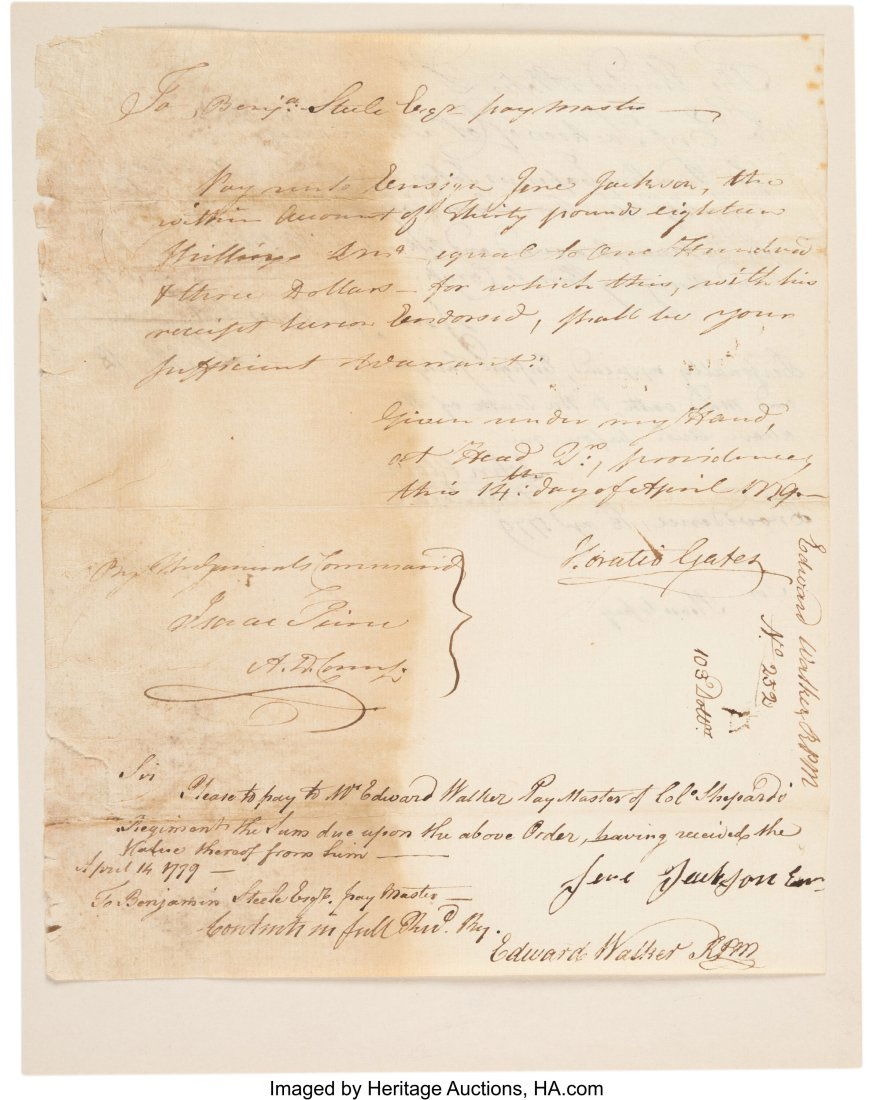 To Benja. Steele Esqr. pay Master
Pay unto Ensign Jere Jackson, the
within Account of Thirty pounds eighteen
Shillings equal to One Hundred
& three Dollars — for which this, with his
receipt hereon Endorsed, shall be your
Sufficient Warrant.
Given under my Hand,
at Head Qrs, providence,
this 14th. day of April 1779.
Horatio Gates
By the Generals Command
Isaac Peirce
A. D. Camp.
Edward Walker RPM
No. 252
103 Dollrs
Sir
Please to pay to Mr Edward Walker Pay Master of Colo. Shepard's
Regiment the Sum due upon the above Order, having received the
Value thereof from him —
April 14 1779 —
Jere Jackson Ensn
To Benjamin Steele Esqr. pay Master —
Contents in full Recd. Pr.
Edward Walker RPM
Imaged by Heritage Auctions, HA.com